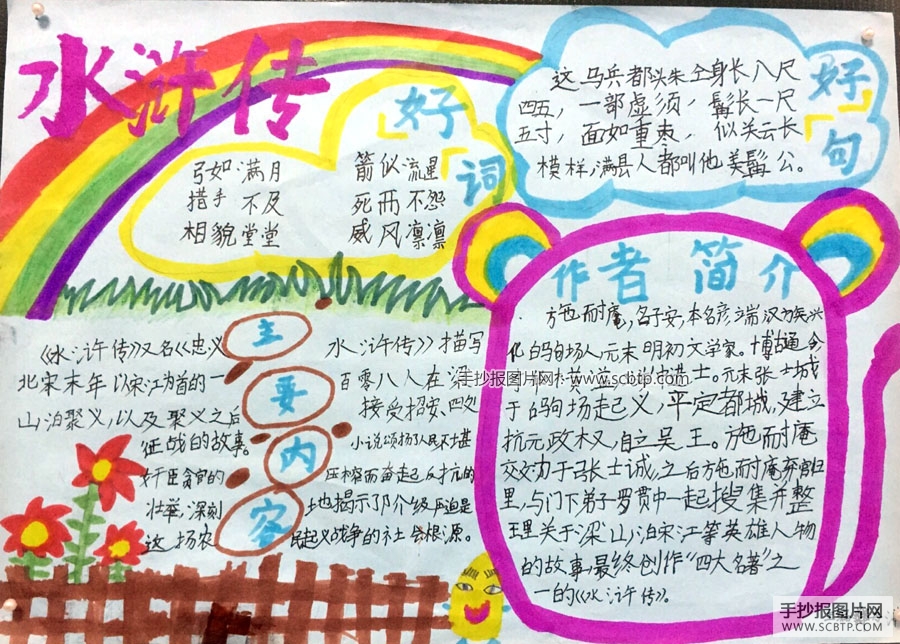 水浒传
好词
弓如满月 箭似流星
措手不及 死而不怨
相貌堂堂 威风凛凛
好句
这马兵都头朱仝身长八尺
四五，一部虚须，髯长一尺
五寸，面如重枣，似关云长
模样，满县人都叫他美髯公。
主要内容
《水浒传》又名《忠义 水浒传》》描写
北宋末年以宋江为首的一 百零八人在
山泊聚义，以及聚义之后 接受招安、四处
征战的故事。 小说颂扬了人民不堪
奸臣贪官的 压榨而奋起反抗的
壮举，深刻 地揭示了
这场农 民起义战争的社会根源。
作者简介
施耐庵，名子安，本名彦端汉族兴
化白驹场人元末明初文学家。博古通今
进士。元末张士城
于白驹场起义，平定都城，建立
抗元政权，自立吴王。施耐庵
效力于张士诚，之后施耐庵弃官归
里，与门下弟子罗贯中一起搜集并整
理关于梁山泊宋江等英雄人物
的故事，最终创作“四大名著”之
一的《水浒传》。
手抄报图片网 www.scbtp.com
手抄报图片网
WWW.SCBTP.COM